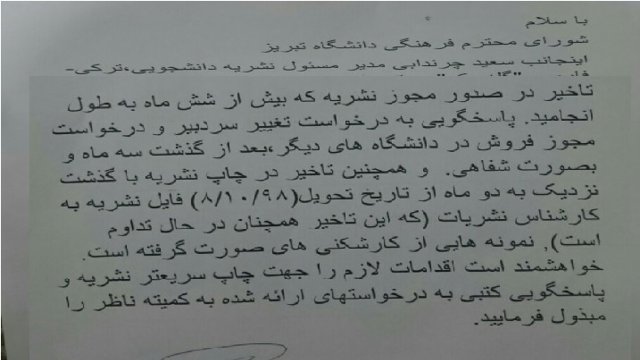 با سلام
شورای محترم فرهنگی دانشگاه تبریز
اینجانب سعید چرندابی مدیر مسئول نشریه دانشجویی،ترکی-
تاخیر در صدور مجوز نشریه که بیش از شش ماه به طول
انجامید. پاسخگویی به درخواست تغییر سردبیر و درخواست
مجوز فروش در دانشگاه های دیگر،بعد از گذشت سه ماه و
بصورت شفاهی. و همچنین تاخیر در چاپ نشریه با گذشت
نزدیک به دو ماه از تاریخ تحویل(۸/۱۰/۹۸) فایل نشریه به
کارشناس نشریات (که این تاخیر همچنان در حال تداوم
است), نمونه هایی از کارشکنی های صورت گرفته است.
خواهشمند است اقدامات لازم را جهت چاپ سریعتر نشریه و
پاسخگویی کتبی به درخواستهای ارائه شده به کمیته ناظر را
مبذول فرمایید.